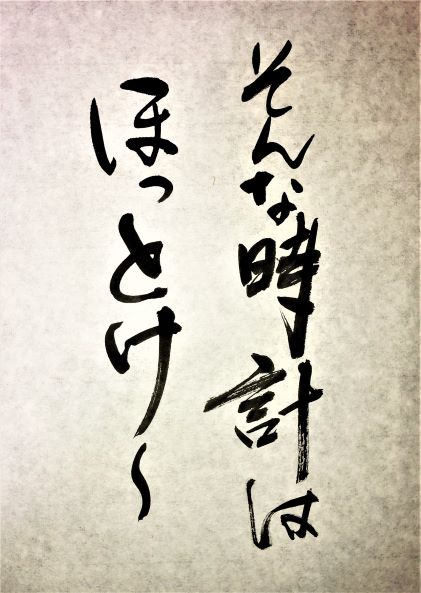 そんな時計は
ほっとけ〜